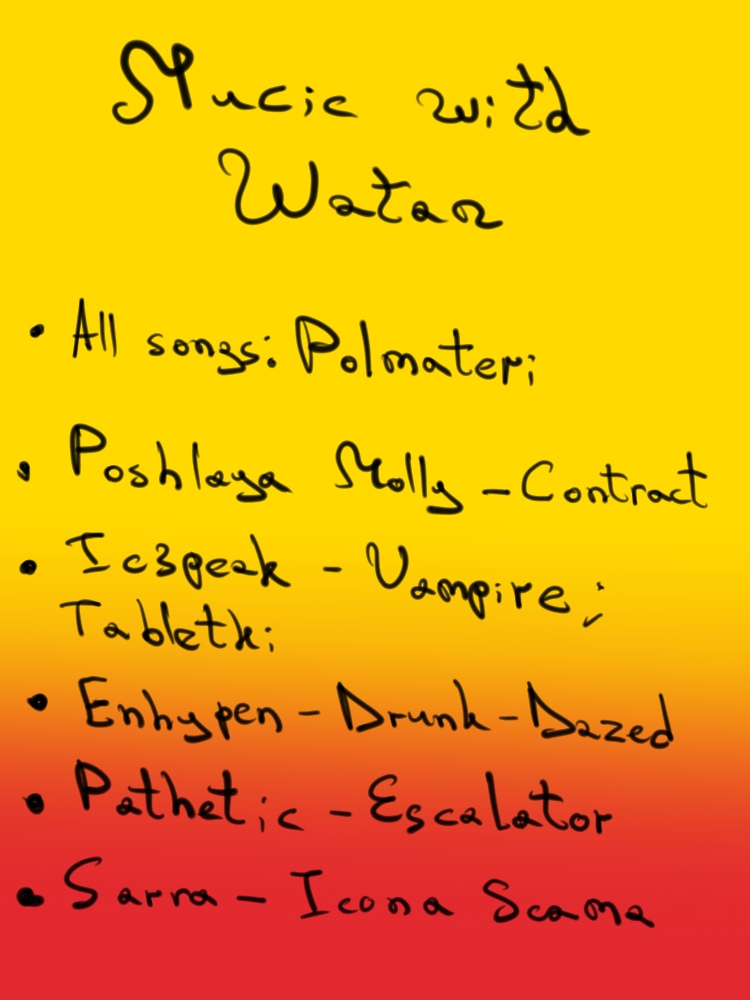 Mucic with
Watan
• All songs: Polmateri
• Poshlaya Molly – Contract
• Ic3peak – Vampire;
Tabletki
• Enhypen – Drunk-Dazed
• Pathetic – Escalator
• Sarra – Icona Scama